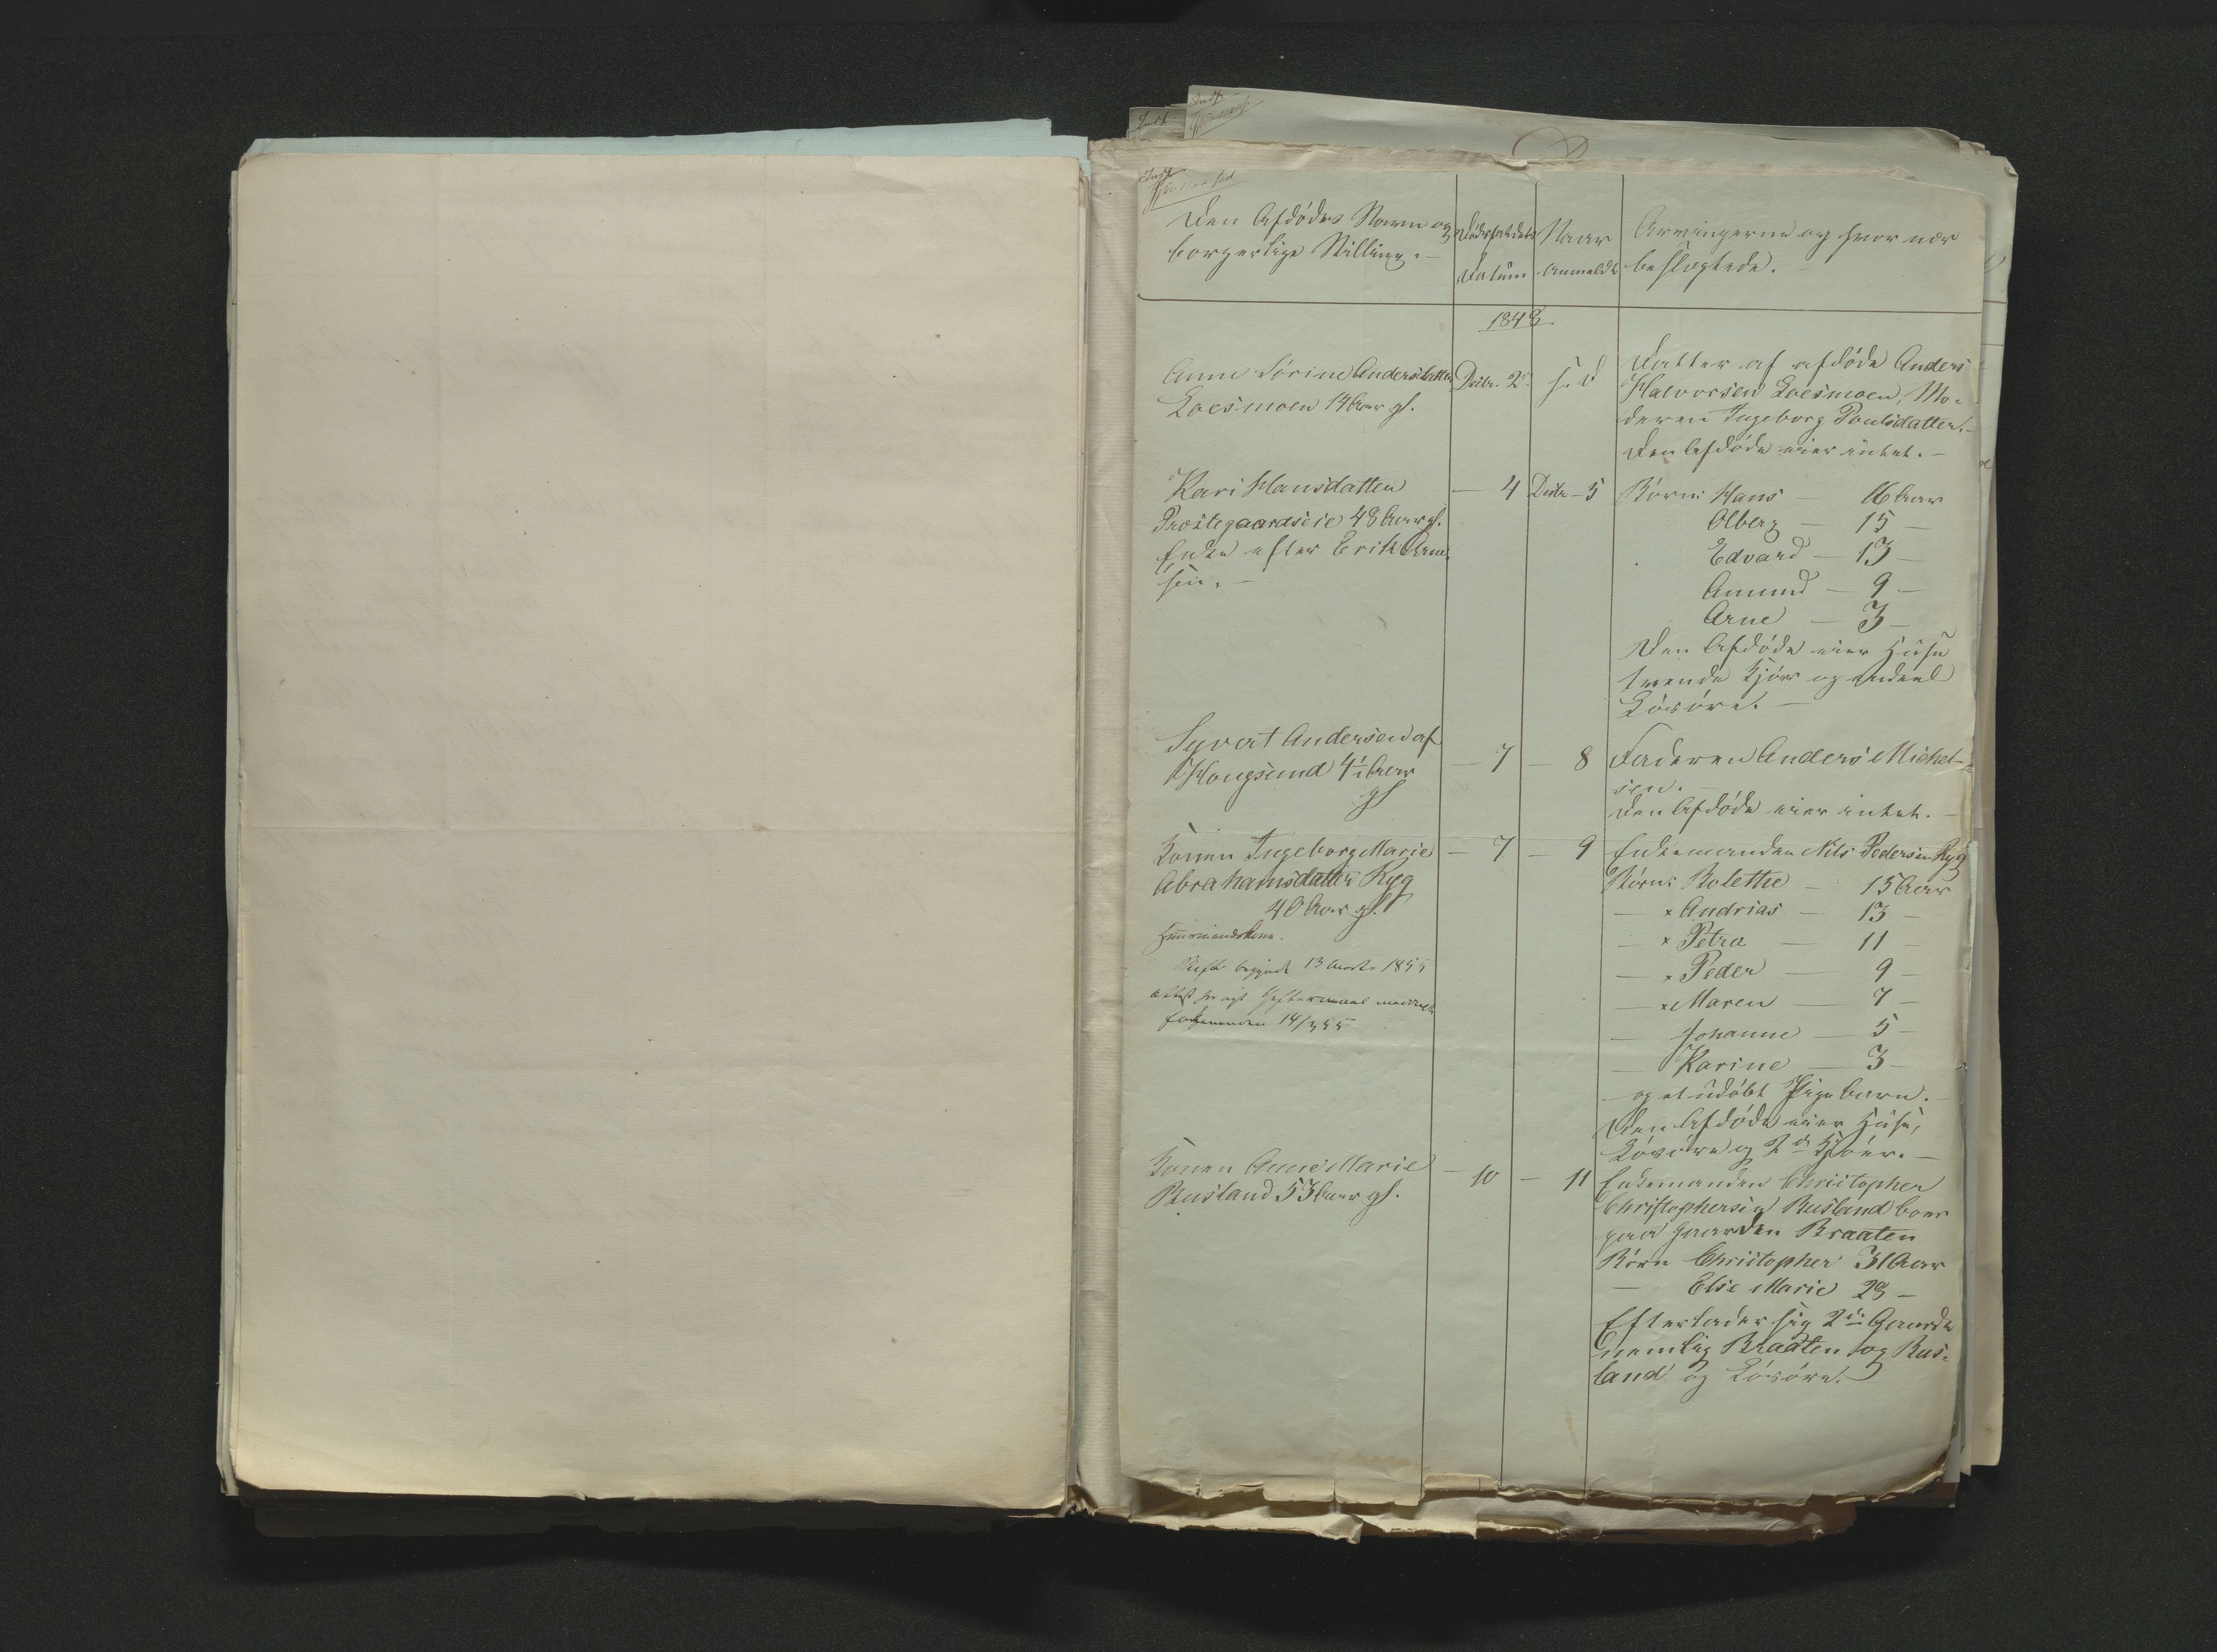 Den Afdødes Navn og
borgerlige Stilling.
Dødsfaldets
Datum
Naar
Anmeldt
Arvingerne og hvor nær
beslægtede.
1848
Anne Sørine Andersdatter
Loesmoen 14 Aar gl.
Decbr. 2
s. D
Datter af afdøde Anders
Halvorsen Loesmoen, Mo-
deren Ingeborg Poulsdatter.
Den Afdøde eier intet.
Kari Hansdatter
Præstegaardseie 48 Aar gl.
Enke efter Erik Arne-
sen.
— 4
Decbr — 5
Børn: Hans — 16 Aar
Olberg — 15 —
Edvard — 13 —
Amund — 9 —
Arne — 3 —
Den Afdøde eier Huse
tvende Kjør og endeel
Løsøre.
Syvert Andersen af
Hougsund 4½ Aar
gl
— 7
— 8
Faderen Anders Michel-
sen.
Den Afdøde eier intet.
Konen Ingeborg Marie
Abrahamsdatter Ryg
40 Aar gl.
Huusmandskone.
Skifte begyndt 13 Marts 1855
Attest for nyt Giftermaal meddelt
Enkemanden 14/3 55
— 7
— 9
Enkemanden Nils Pedersen Ryg
Børn: Bolethe — 15 Aar
— × Andrias — 13 —
— × Petra — 11 —
— × Peder — 9 —
— × Maren — 7 —
— Johanne — 5 —
— Karine — 3 —
— og et udøbt Pigebarn.
Den Afdøde eier Huse,
Løsøre og 2de Kjøer.
Konen Anne Marie
Rusland 53 Aar gl.
— 10
— 11
Enkemanden Christopher
Christophersen Rusland boer
paa Gaarden Braaten
Børn Christopher 31 Aar
— Else Marie 28 —
Efterlader sig 2de Gaarde
nemlig Braaten og Rus-
land og Løsøre.